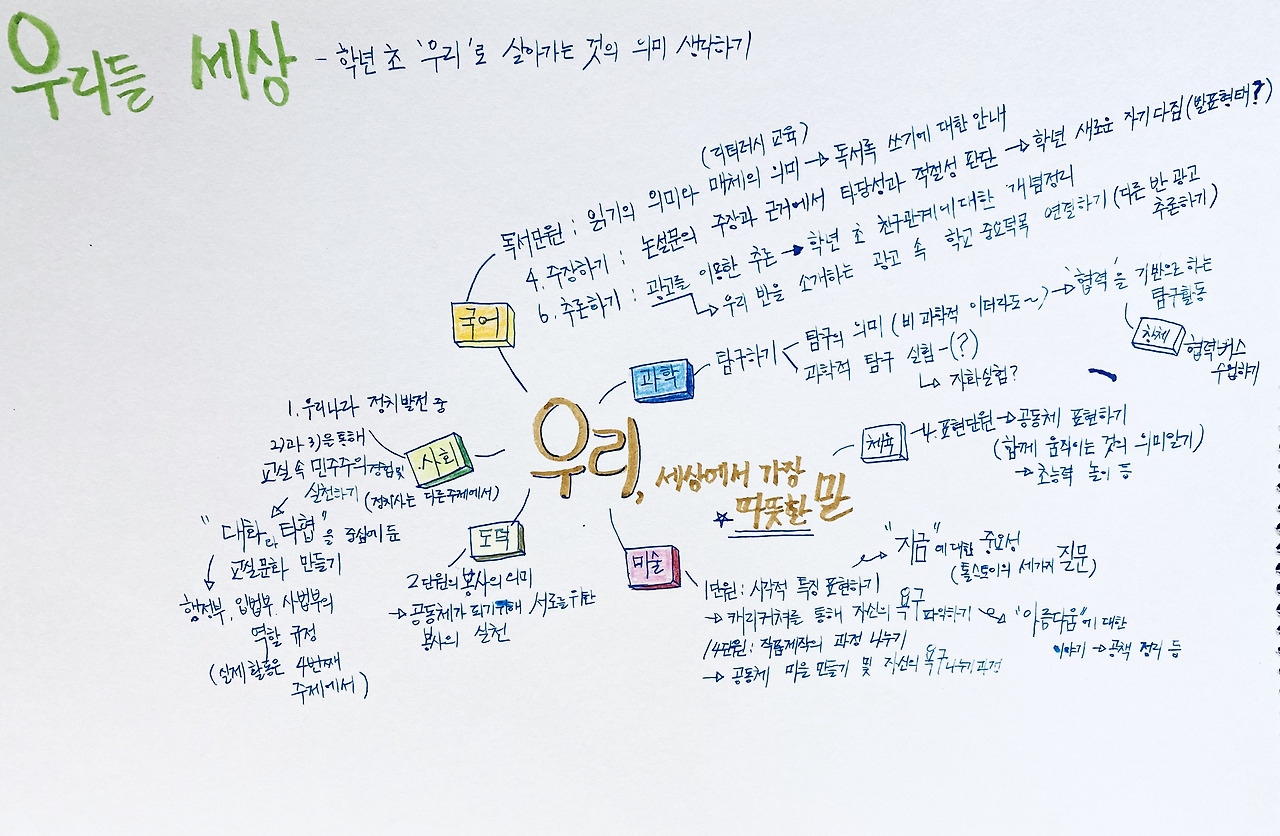 우리들 세상 - 학년 초 '우리'로 살아가는 것의 의미 생각하기
국어
(리터러시 교육)
독서단원 : 읽기의 의미와 매체의 의미 → 독서록 쓰기에 대한 안내
4. 주장하기 : 논설문의 주장과 근거에서 타당성과 적절성 판단 → 학년 새로운 자기다짐 (발표형태?)
6. 추론하기 : 광고를 이용한 추론 → 학년 초 친구관계에 대한 개념정리
↳ 우리 반을 소개하는 광고 속 학교 중요덕목 연결하기 (다른 반 광고
추론하기)
과학
탐구하기 < 탐구의 의미 (비 과학적 이더라도~) → '협력'을 기반으로 하는
탐구활동
과학적 탐구 실험 - (?)
↳ 자화실험?
창체
협력버스
수업하기
체육
4. 표현단원 → 공동체 표현하기
(함께 움직이는 것의 의미알기)
→ 초능력 놀이 등
우리,
세상에서 가장
따뜻한 말
사회
1. 우리나라 정치발전 중
2)과 3)을 통해
교실 속 민주주의 경험 및
실천하기 (정치사는 다른주제에서)
"대화와 타협"을 중심에 둔
교실문화 만들기
행정부, 입법부, 사법부의
역할 규정
(실제 활동은 4번째
주제에서)
도덕
2단원의 봉사의 의미
→ 공동체가 되기위해 서로를 위한
봉사의 실천
미술
1단원 : 시각적 특징 표현하기
→ "지금"에 대한 중요성
(톨스토이의 세가지 질문)
→ 캐리커쳐를 통해 자신의 욕구 파악하기 → "아름다움"에 대한
이야기 → 공책 정리 등
4단원 : 작품제작의 과정 나누기
→ 공동체 마을 만들기 및 자신의 욕구 나누기 과정